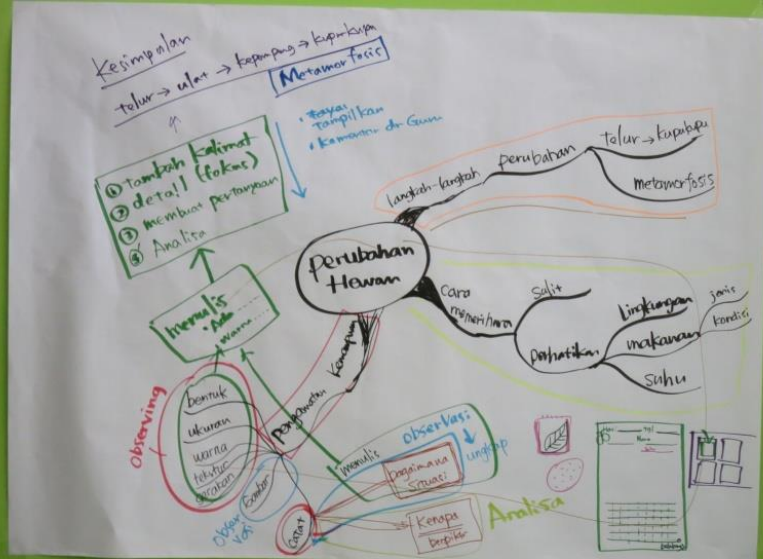 Kesimpulan
telur → ulat → kepompong → kupu-kupu
Metamorfosis
tampilkan
komentar dr Guru
① Tambah kalimat
② detail (fokus)
③ membuat pertanyaan
④ Analisa
menulis
warna
Perubahan
Hewan
langkah-langkah
perubahan
telur → kupukupu
metamorfosis
cara
sulit
perhatikan
lingkungan
makanan
jenis
kondisi
suhu
kemampuan
pengamatan
observing
bentuk
ukuran
warna
tekstur
gerakan
gambar
menulis
observasi
ungkap
bagaimana
situasi
catat
Kenapa
berpikir
Analisa